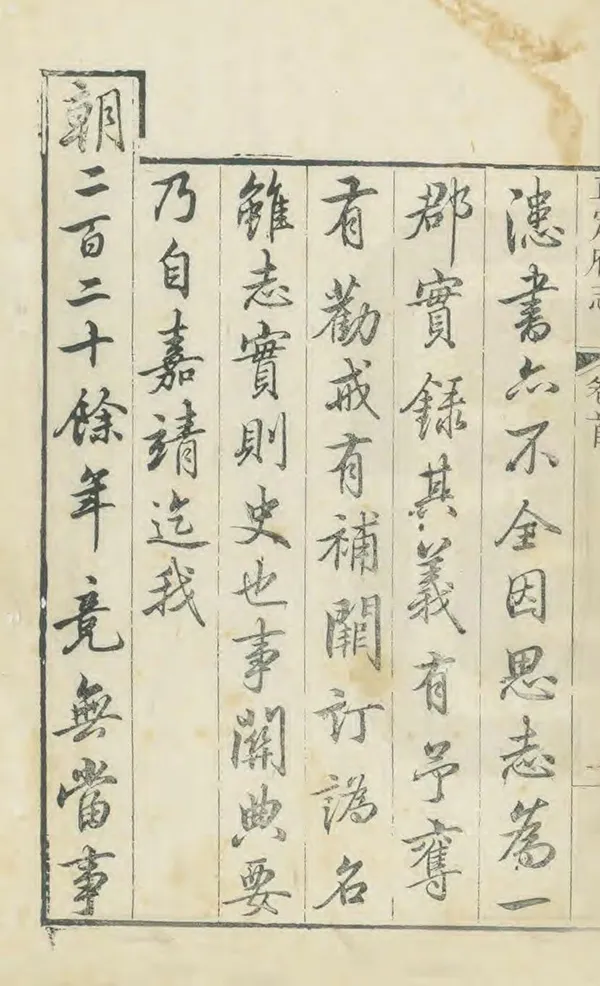 正定府志 卷首
漶書亦不全因思志為一
郡實錄其義有予奪
有勸戒有補闕訂譌名
雖志實則史也事關典要
乃自嘉靖迄我
朝二百二十餘年竟無當事